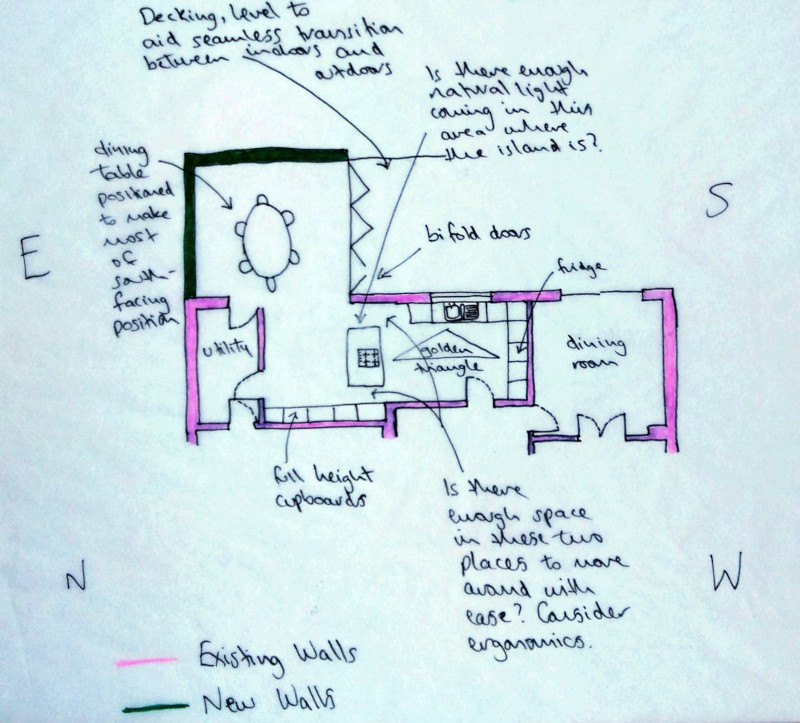 Decking, level to
aid seamless transition
between indoors and
outdoors
Is there enough
natural light
coming in this
area where
the island is?
dining
table
positioned
to make
most
of
south-
facing
position
S
E
bifold doors
fridge
utility
golden
triangle
dining
room
full height
cupboards
Is there
enough space
in these two
places to move
around with
ease? Consider
ergonomics.
N
W
Existing Walls
New Walls